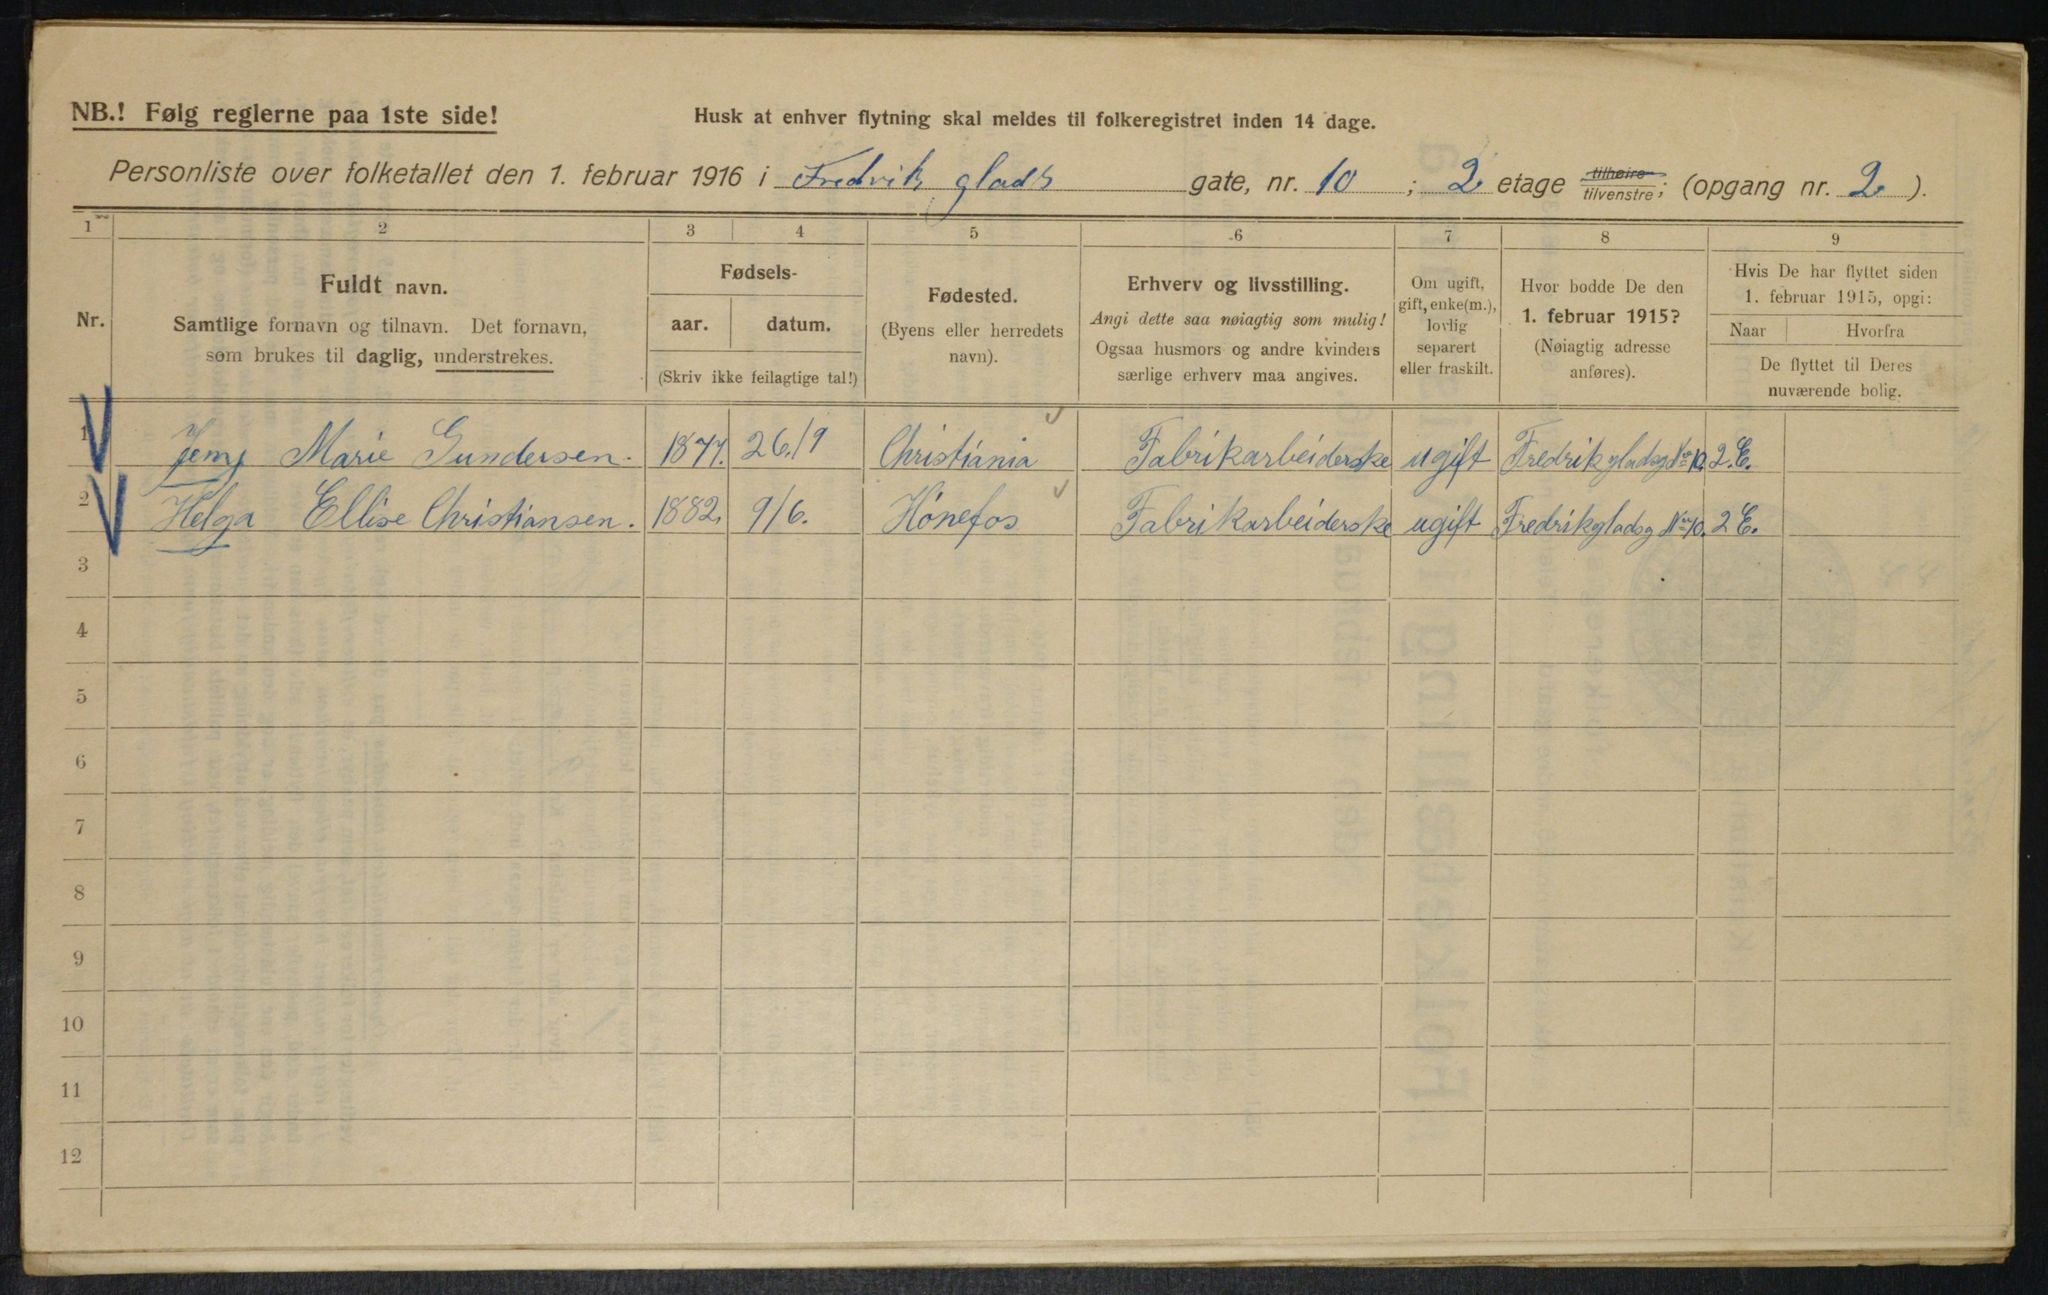 NB.! Følg reglerne paa 1ste side!
Husk at enhver flytning skal meldes til folkeregistret inden 14 dage.
Personliste over folketallet den 1. februar 1916 i Fredrik glads gate, nr. 10 ; 2 etage tilhøire/tilvenstre; (opgang nr. 2 ).
1 2 3 4 5 6 7 8 9
Nr.
Fuldt navn.
Samtlige fornavn og tilnavn. Det fornavn,
som brukes til daglig, understrekes.
Fødsels-
aar. datum.
(Skriv ikke feilagtige tal!)
Fødested.
(Byens eller herredets
navn).
Erhverv og livsstilling.
Angi dette saa nøiagtig som mulig!
Ogsaa husmors og andre kvinders
særlige erhverv maa angives.
Om ugift,
gift, enke(m.),
lovlig
separert
eller fraskilt.
Hvor bodde De den
1. februar 1915?
(Nøiagtig adresse
anføres).
Hvis De har flyttet siden
1. februar 1915, opgi:
Naar Hvorfra
De flyttet til Deres
nuværende bolig.
1 Jeny Marie Gundersen. 1877. 26./9 Christiania Fabrikarbeiderske ugift Fredrik gladsg No 10. 2. E.
2 Helga Ellise Christiansen. 1882. 9/6. Hönefos Fabrikarbeiderske ugift Fredrikgladsg No 10. 2 E.
3
4
5
6
7
8
9
10
11
12